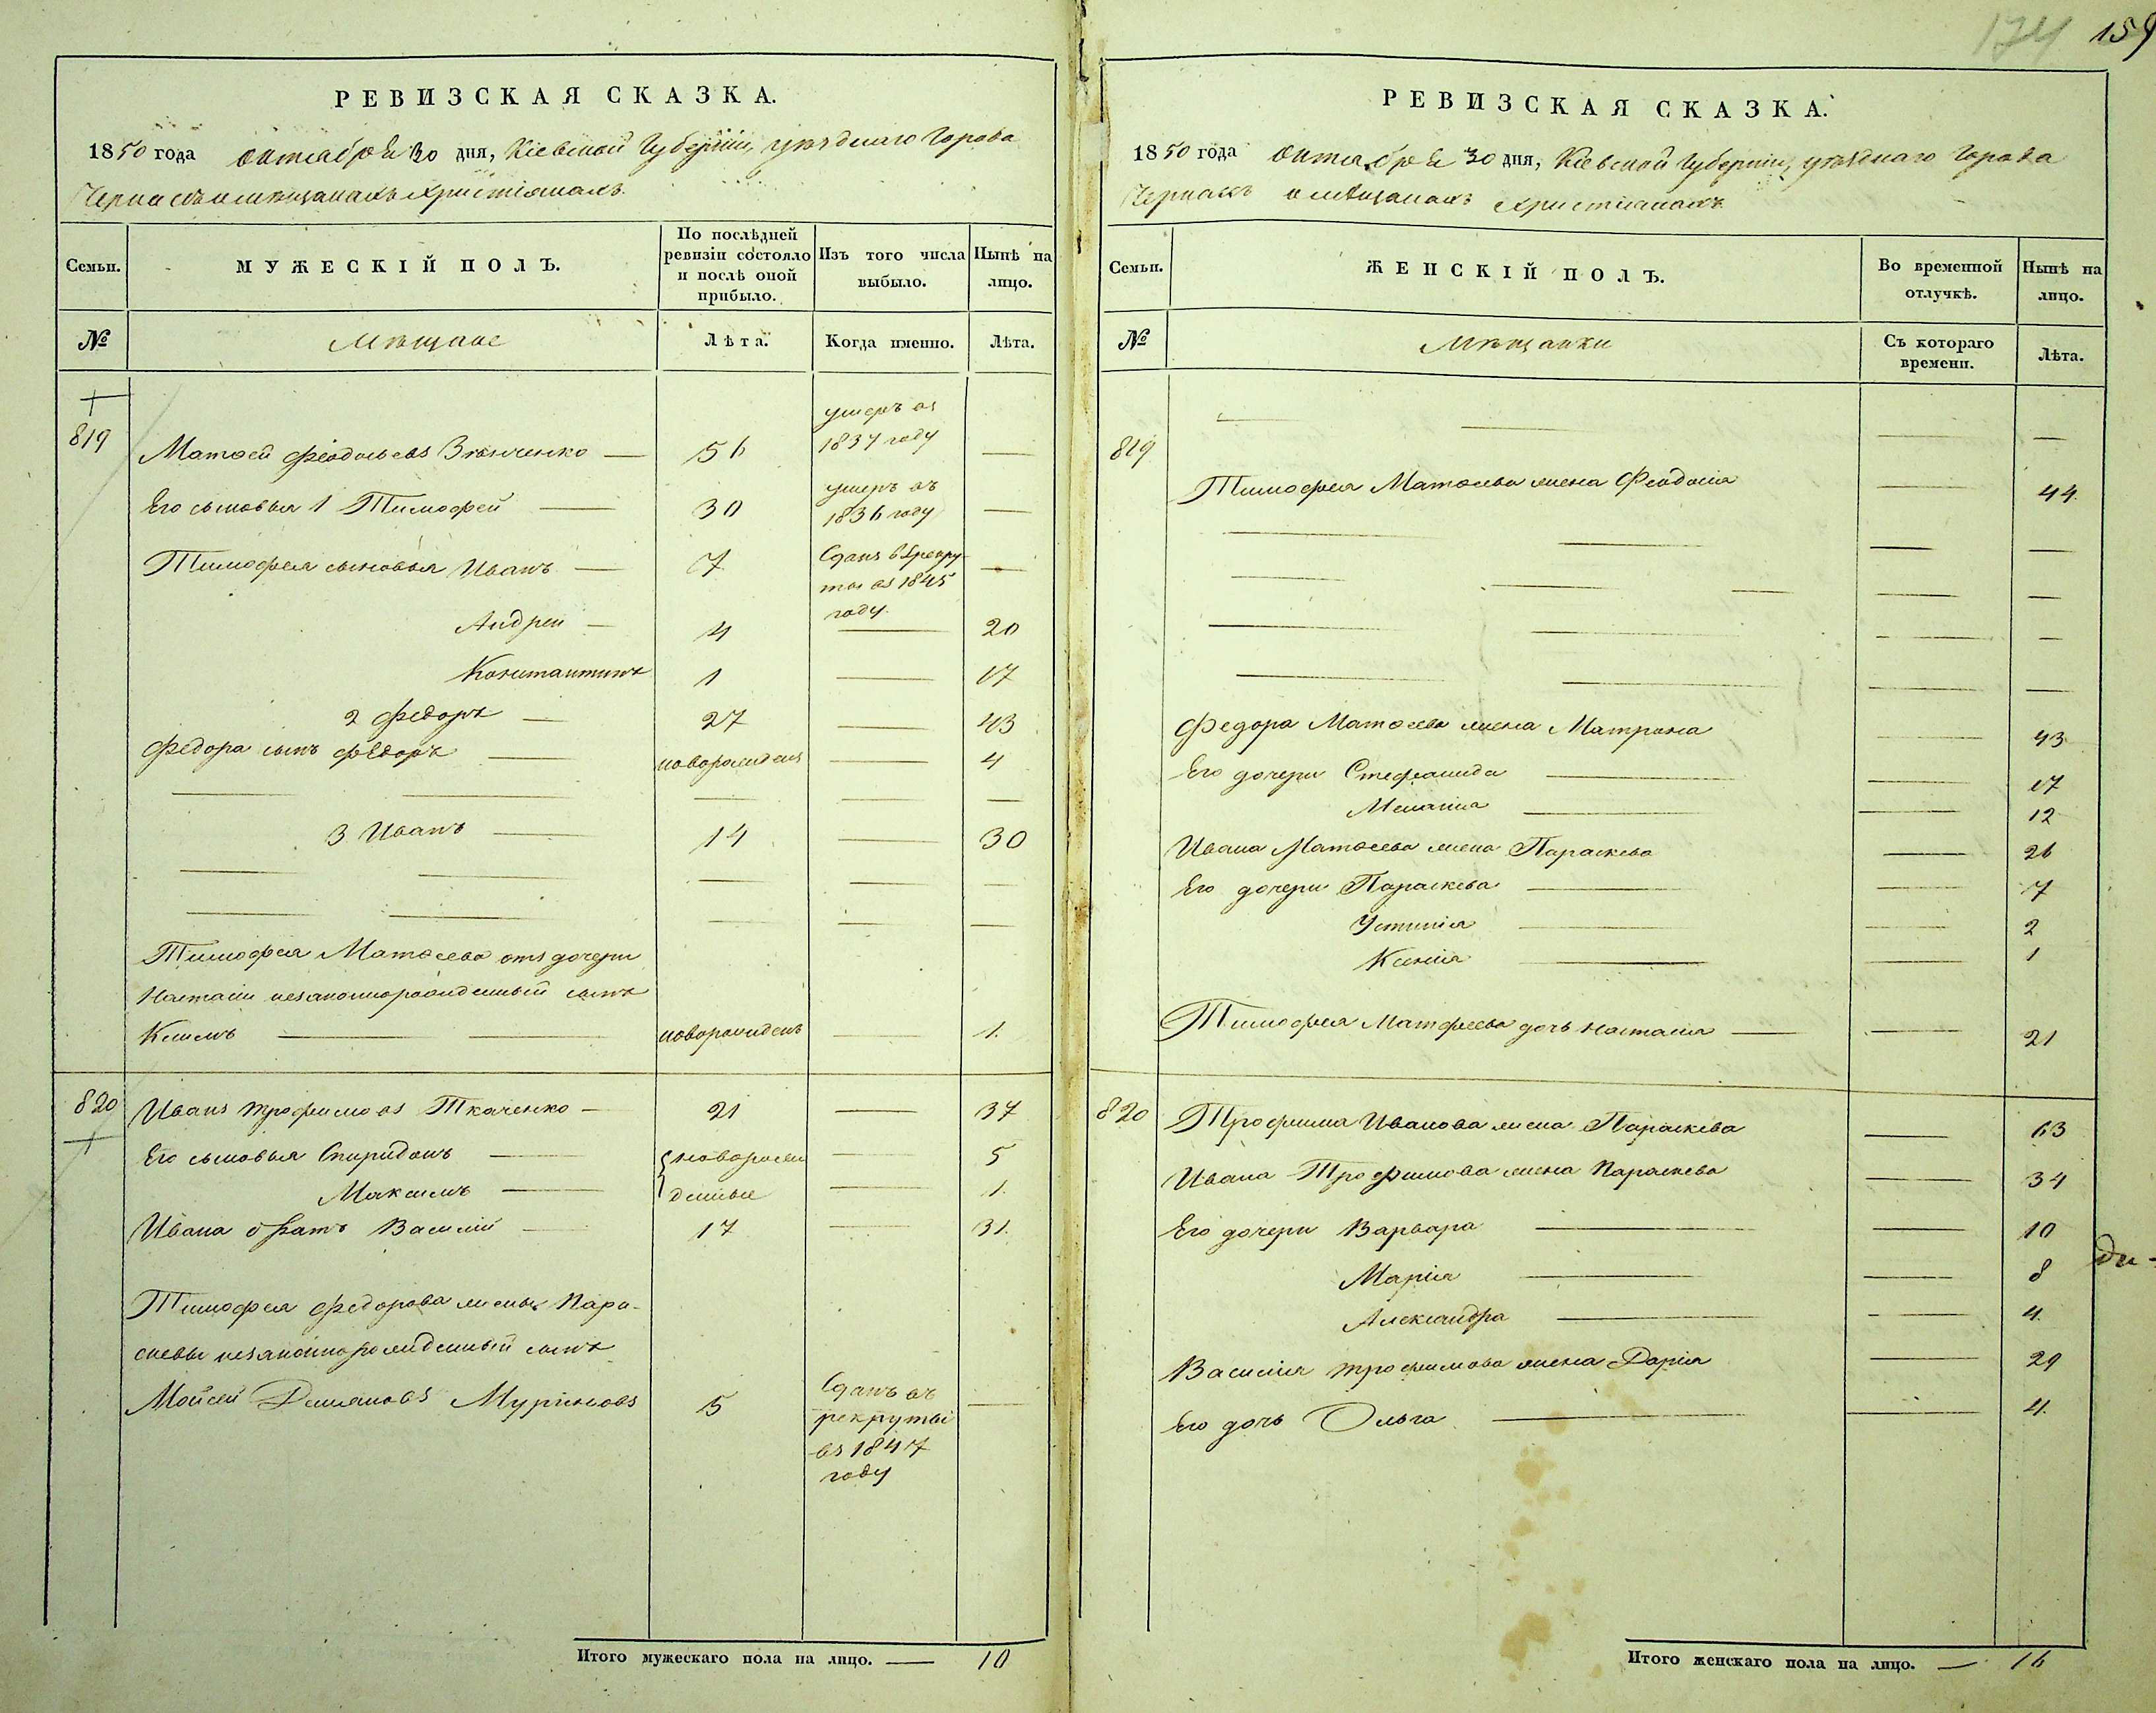 174 159
РЕВИЗСКАЯ СКАЗКА.
1850 года октября 30 дня, Кіевской Губерніи, уѣзднаго Города
Черкасъ о мѣщанахъ христіянахъ
Семьи. МУЖЕСКІЙ ПОЛЪ. По послѣдней ревизіи состояло и послѣ оной прибыло. Изъ того числа выбыло. Нынѣ на лицо.
№ Мѣщане Лѣта. Когда именно. Лѣта.
819 Матѳей Феодосьевъ Зѣнченко — 56 умеръ въ 1837 году —
Его сыновья 1 Тимофей — 30 умеръ въ 1836 году —
Тимофея сыновья Иванъ — 7 Сданъ въ рекруты въ 1845 году. —
Андрей — 4 — 20
Константинъ 1 — 17
2 Федоръ — 27 — 43
Федора сынъ Федоръ — новорожденъ — 4
3 Иванъ — 14 — 30
Тимофея Матѳеева отъ дочери
Настасіи незаконнорожденный сынъ
Климъ — новорожденъ — 1.
820 Иванъ Трофимовъ Ткаченко — 21 — 37
Его сыновья Спиридонъ — новорож- — 5
Максимъ — денные — 1.
Ивана братъ Василій — 17 — 31.
Тимофея Федорова жены Пара-
скевы незаконнорожденный сынъ
Мойсей Демяновъ 5 Сданъ въ рекруты въ 1847 году —
Итого мужескаго пола на лицо. — 10
РЕВИЗСКАЯ СКАЗКА.
1850 года октября 30 дня, Кіевской Губерніи, уѣзднаго Города
Черкасъ о мѣщанахъ христіянахъ
Семьи. ЖЕНСКІЙ ПОЛЪ. Во временной отлучкѣ. Нынѣ на лицо.
№ Мѣщанки Съ котораго времени. Лѣта.
819
Тимофея Матѳеева жена Феодосія — 44.
Федора Матѳеева жена Матрона — 43
Его дочери Стефанида — 17
Меланія — 12
Ивана Матѳеева жена Параскева — 26
Его дочери Параскева — 7
Устинія — 2
Ксенія — 1
Тимофея Матфеева дочь Настасія — 21
820 Трофима Иванова жена Параскева — 63
Ивана Трофимова жена Параскева — 34
Его дочери Варвара — 10
Марія — 8
Александра — 4.
Василія Трофимова жена Дарія — 29
Его дочь Ольга — 4.
Итого женскаго пола на лицо. — 16